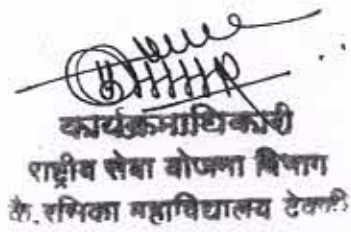 कार्यक्रमाधिकारी
राष्ट्रीय सेवा योजना विभाग
कै. रमिका महाविद्यालय